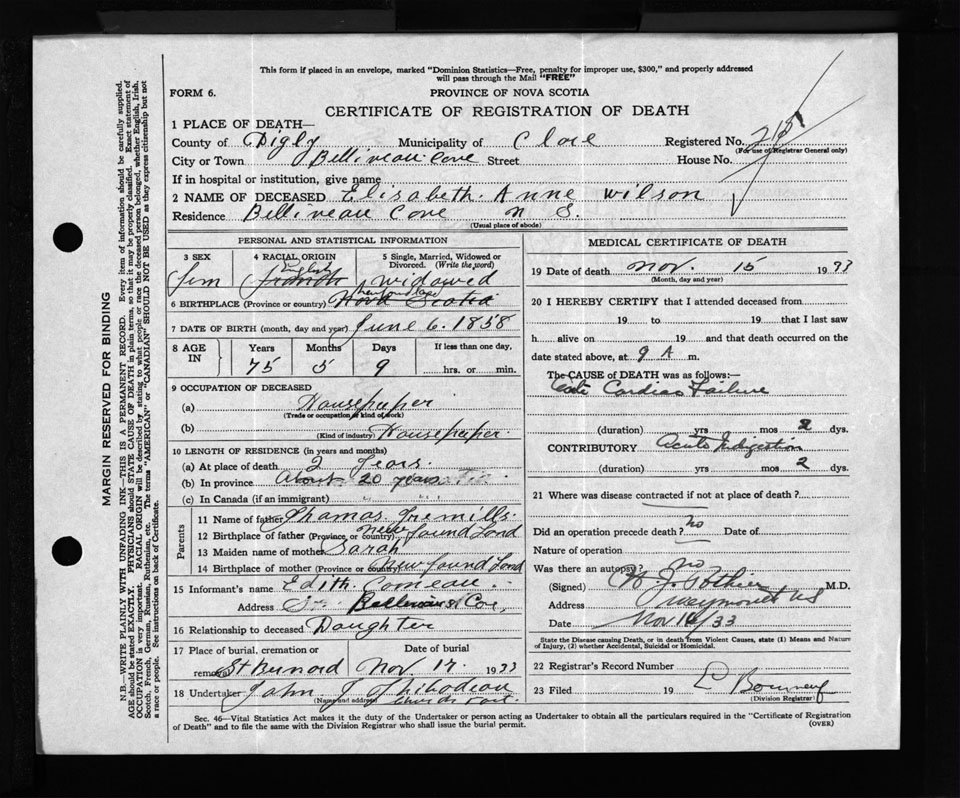 This form if placed in an envelope, marked "Dominion Statistics—Free, penalty for improper use, $300," and properly addressed
will pass through the Mail "FREE"
FORM 6.
PROVINCE OF NOVA SCOTIA
CERTIFICATE OF REGISTRATION OF DEATH
1 PLACE OF DEATH—
County of Digby Municipality of Clare Registered No.
(For use of Registrar General only)
City or Town Belliveau Cove Street House No.
If in hospital or institution, give name
2 NAME OF DECEASED Elisabeth. Anne Wilson
Residence Belliveau Cove N S.
(Usual place of abode)
PERSONAL AND STATISTICAL INFORMATION
3 SEX 4 RACIAL ORIGIN 5 Single, Married, Widowed or
Divorced. (Write the word)
fem English widowed
Newfoundland
6 BIRTHPLACE (Province or country) Nova Scotia
7 DATE OF BIRTH (month, day and year) June 6. 1858
8 AGE IN Years Months Days If less than one day,
75 5 9 hrs. or min.
9 OCCUPATION OF DECEASED
(a) Housekeeper
(Trade or occupation or kind of work)
(b) Housekeeper
(Kind of industry)
10 LENGTH OF RESIDENCE (in years and months)
(a) At place of death 2 Years.
(b) In province About 20 years
(c) In Canada (if an immigrant)
Parents
11 Name of father Thomas Gremills
12 Birthplace of father (Province or country) New found Lond
13 Maiden name of mother Sarah
14 Birthplace of mother (Province or country) New found Lond
15 Informant's name Edith. Comeau
Address Belliveau Cov,
16 Relationship to deceased Daughter
17 Place of burial, cremation or Date of burial
removal St Bernard Nov 17. 1933
18 Undertaker John J Thibodeau
(Name and address) Church Point
MEDICAL CERTIFICATE OF DEATH
19 Date of death Nov. 15 1933
(Month, day and year)
20 I HEREBY CERTIFY that I attended deceased from
19 to 19 that I last saw
h alive on 19 and that death occurred on
date stated above, at 9 A m.
The CAUSE of DEATH was as follows:—
Acute Cardiac Failure
(duration) yrs mos 2 dys.
CONTRIBUTORY Acute Indigestion
(duration) yrs mos 2 dys.
21 Where was disease contracted if not at place of death?
Did an operation precede death? no Date of
Nature of operation
Was there an autopsy? no
(Signed) Pothier M.D.
Address Weymouth NS
Date Nov 16/33
State the Disease causing Death, or in death from Violent Causes, state (1) Means and Nature
of Injury, (2) whether Accidental, Suicidal or Homicidal.
22 Registrar's Record Number
23 Filed 19 L Bourneuf
(Division Registrar)
Sec. 46—Vital Statistics Act makes it the duty of the Undertaker or person acting as Undertaker to obtain all the particulars required in the "Certificate of Registration
of Death" and to file the same with the Division Registrar who shall issue the burial permit. (OVER)
MARGIN RESERVED FOR BINDING
N.B.—WRITE PLAINLY WITH UNFADING INK—THIS IS A PERMANENT RECORD. Every item of information should be carefully supplied.
AGE should be stated EXACTLY. PHYSICIANS should STATE CAUSE OF DEATH in plain terms, so that it may be properly classified. Exact statement of
OCCUPATION is very important. RACIAL ORIGIN will be described by stating to what people or race the deceased person belonged, whether English, Irish,
Scotch, French, German, Russian, Ruthenian, etc. The terms "AMERICAN" or "CANADIAN" SHOULD NOT BE USED as they express citizenship but not
a race or people. See instructions on back of Certificate.